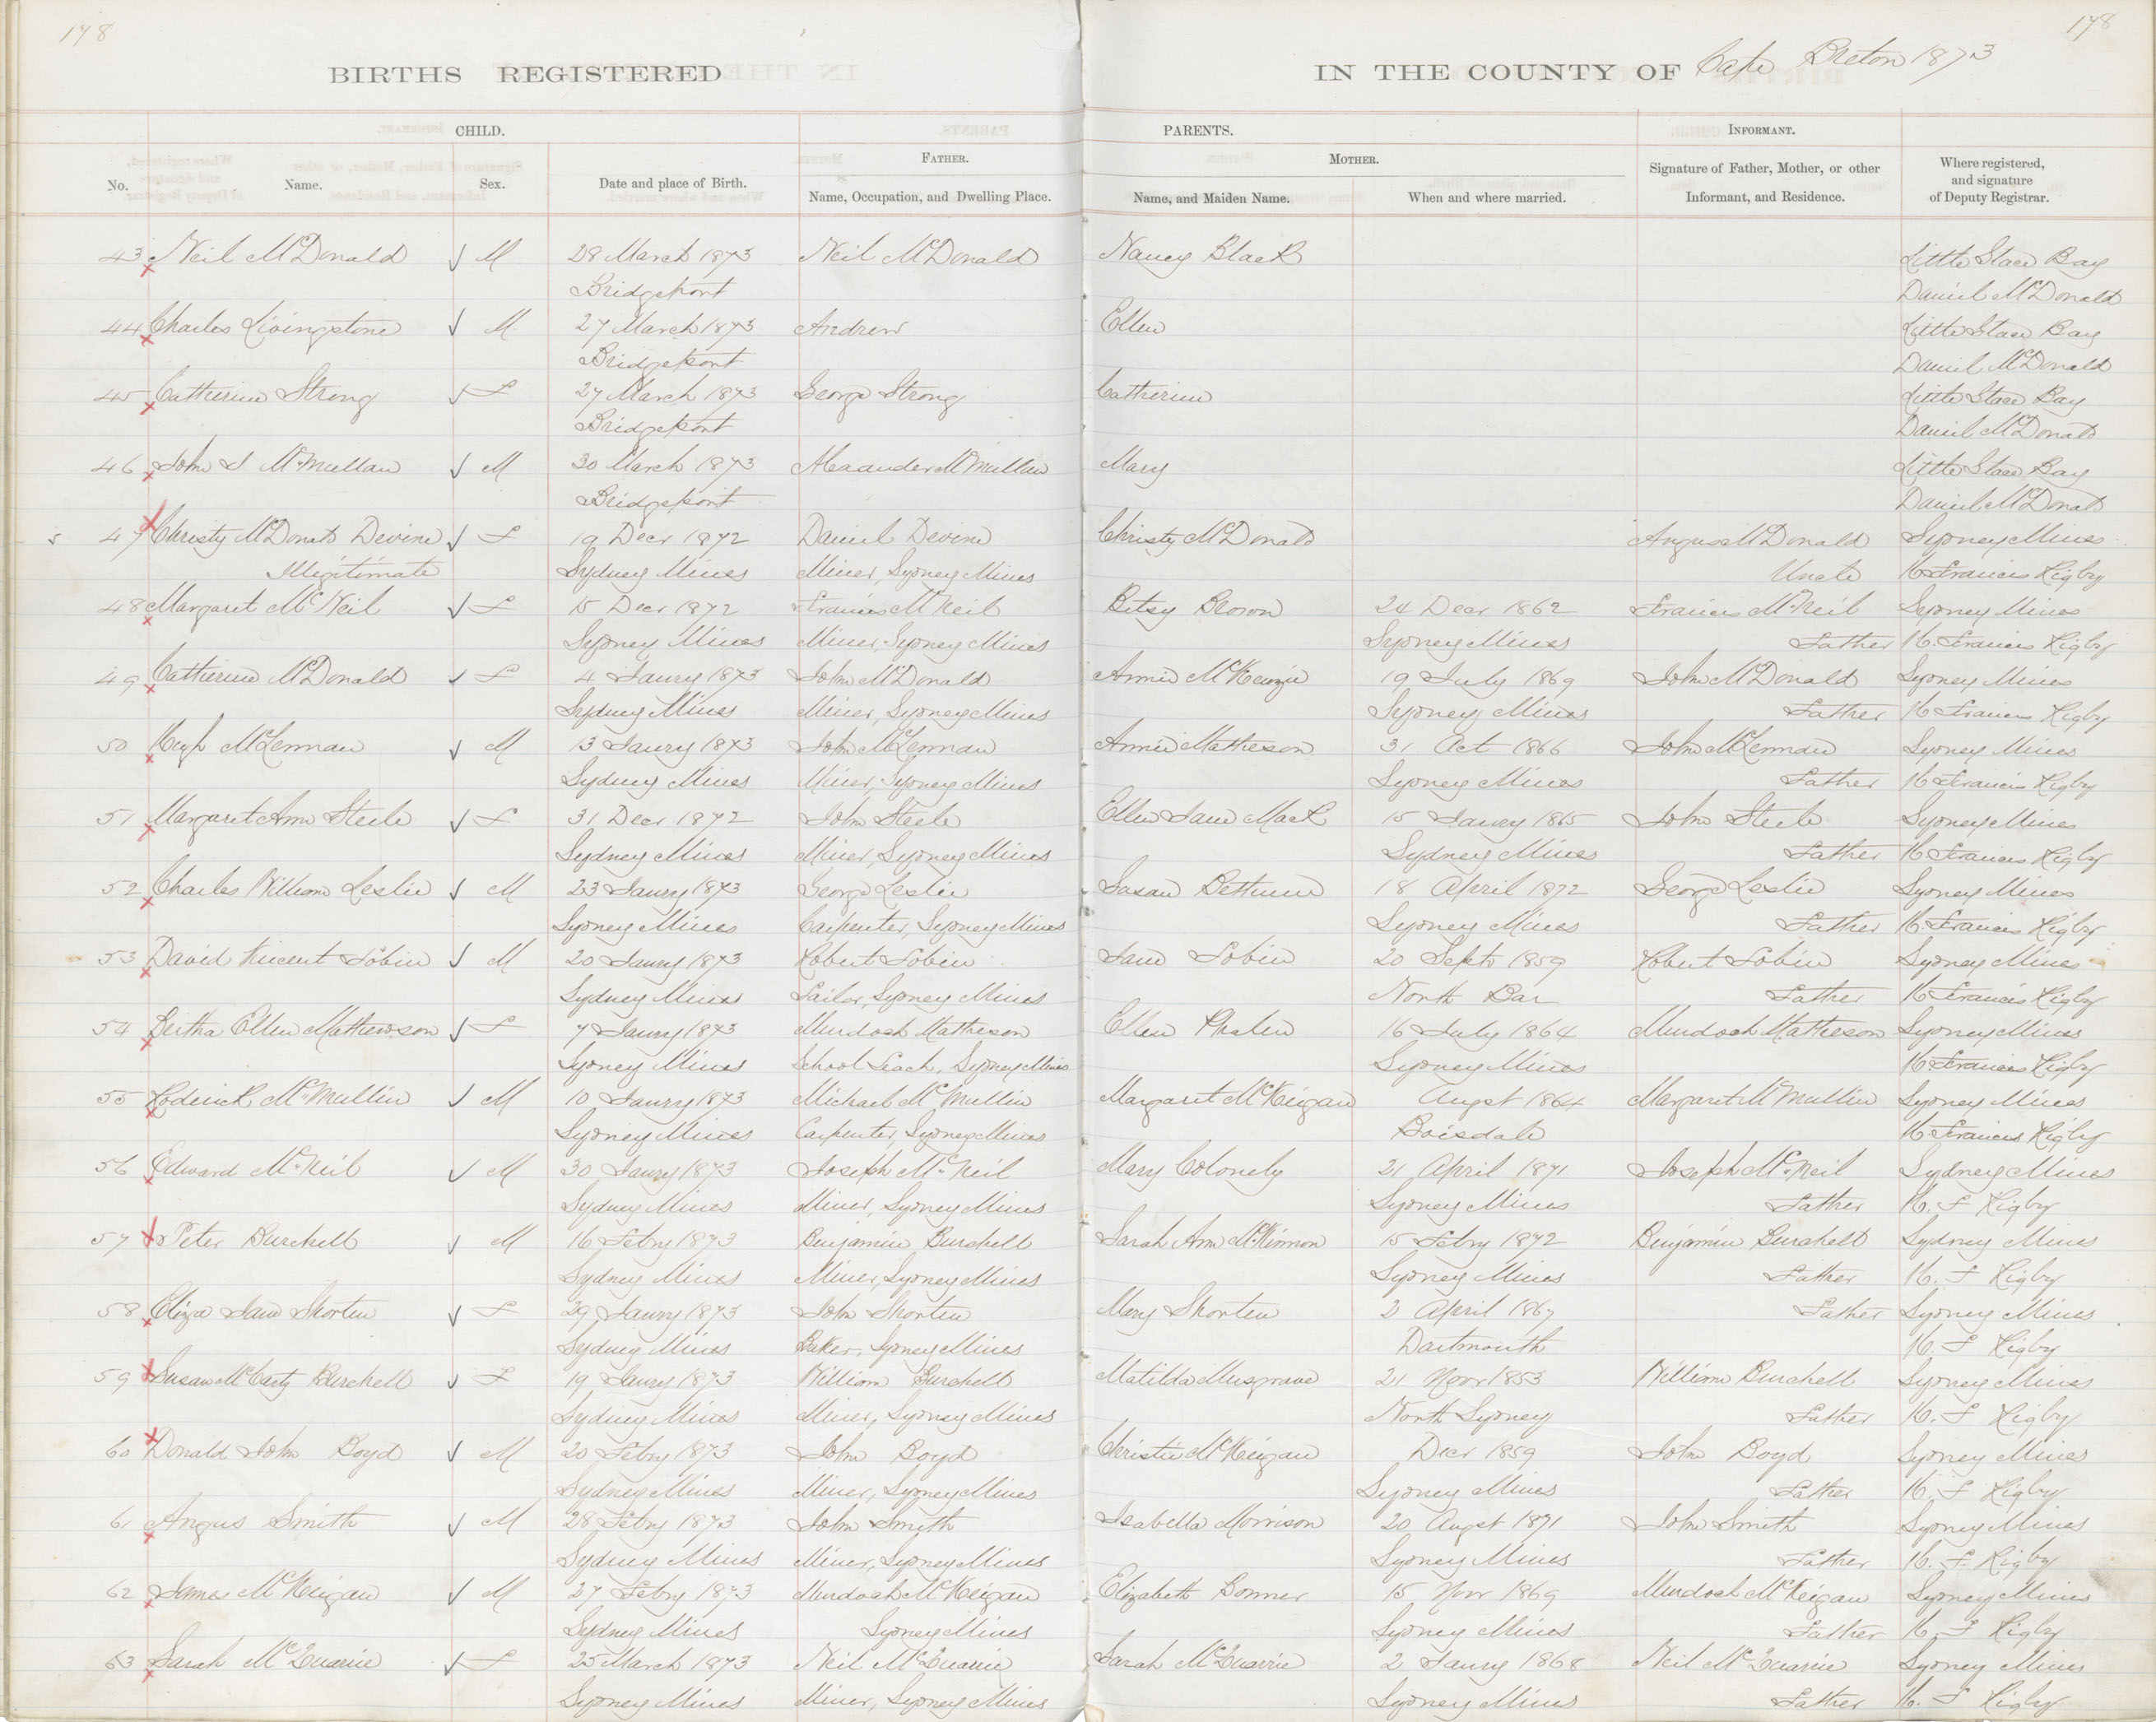 178
178
BIRTHS REGISTERED
IN THE COUNTY OF Cape Breton 1873
CHILD.
PARENTS.
INFORMANT.
FATHER.
MOTHER.
No.
Name.
Sex.
Date and place of Birth.
Name, Occupation, and Dwelling Place.
Name, and Maiden Name.
When and where married.
Signature of Father, Mother, or other
Informant, and Residence.
Where registered,
and signature
of Deputy Registrar.
43 Neil McDonald M 28 March 1873 Neil McDonald Nancy Black Little Glace Bay
Bridgeport Daniel McDonald
44 Charles Livingstone M 27 March 1873 Andrew Ellen Little Glace Bay
Bridgeport Daniel McDonald
45 Catherine Strong F 27 March 1873 George Strong Catherine Little Glace Bay
Bridgeport Daniel McDonald
46 John J McMullan M 30 March 1873 Alexander McMullan Mary Little Glace Bay
Bridgeport Daniel McDonald
47 Christy McDonald Devine F 19 Decr 1872 Daniel Devine Christy McDonald Angus McDonald Sydney Mines
Illigitimate Sydney Mines Miner, Sydney Mines Uncle Francis Rigby
48 Margaret McNeil F 15 Decr 1872 Francis McNeil Betsy Brown 24 Decr 1862 Francis McNeil Sydney Mines
Sydney Mines Miner, Sydney Mines Sydney Mines Father Francis Rigby
49 Catherine McDonald F 4 Jaury 1873 John McDonald Annie McKenzie 19 July 1869 John McDonald Sydney Mines
Sydney Mines Miner, Sydney Mines Sydney Mines Father Francis Rigby
50 Hugh McLennan M 13 Jaury 1873 John McLennan Annie Matheson 31 Oct 1866 John McLennan Sydney Mines
Sydney Mines Miner, Sydney Mines Sydney Mines Father Francis Rigby
51 Margaret Ann Steele F 31 Decr 1872 John Steele Ellen Jane Mack 15 Jaury 1865 John Steele Sydney Mines
Sydney Mines Miner, Sydney Mines Sydney Mines Father Francis Rigby
52 Charles William Leslie M 23 Jaury 1873 George Leslie Susan Bethune 18 April 1872 George Leslie Sydney Mines
Sydney Mines Carpenter, Sydney Mines Sydney Mines Father Francis Rigby
53 David Vincent Tobin M 20 Jaury 1873 Robert Tobin Jane Tobin 20 Sept 1859 Robert Tobin Sydney Mines
Sydney Mines Tailor, Sydney Mines North Bar Father Francis Rigby
54 Bertha Ellen Mathewson F 7 Jaury 1873 Murdoch Matheson Ellen Phalen 16 July 1864 Murdoch Matheson Sydney Mines
Sydney Mines School Teach, Sydney Mines Sydney Mines Francis Rigby
55 Roderick McMullin M 10 Jaury 1873 Michael McMullin Margaret McKeigan Augst 1864 Margaret McMullin Sydney Mines
Sydney Mines Carpenter, Sydney Mines Boisdale Francis Rigby
56 Edward McNeil M 30 Jaury 1873 Joseph McNeil Mary 21 April 1871 Joseph McNeil Sydney Mines
Sydney Mines Miner, Sydney Mines Sydney Mines Father F Rigby
57 Peter Burchell M 16 Febry 1873 Benjamin Burchell Sarah Ann McKinnon 15 Febry 1872 Benjamin Burchell Sydney Mines
Sydney Mines Miner, Sydney Mines Sydney Mines Father F Rigby
58 Eliza Jane Shorten F 29 Jaury 1873 John Shorten Mary Shorten 2 April 1867 Father Sydney Mines
Sydney Mines Baker, Sydney Mines Dartmouth F Rigby
59 Susan McCarty Burchell F 19 Jaury 1873 William Burchell Matilda Musgrave 21 Novr 1853 William Burchell Sydney Mines
Sydney Mines Miner, Sydney Mines North Sydney Father F Rigby
60 Donald John Boyd M 20 Febry 1873 John Boyd Christie McKeigan Decr 1859 John Boyd Sydney Mines
Sydney Mines Miner, Sydney Mines Sydney Mines Father F Rigby
61 Angus Smith M 28 Febry 1873 John Smith Isabella Morrison 20 Augst 1871 John Smith Sydney Mines
Sydney Mines Miner, Sydney Mines Sydney Mines Father F. Rigby
62 James McKeigan M 27 Febry 1873 Murdoch McKeigan Elizabeth Bonner 15 Novr 1869 Murdoch McKeigan Sydney Mines
Sydney Mines Sydney Mines Sydney Mines Father F Rigby
63 Sarah McQuarrie F 25 March 1873 Neil McQuarrie Sarah McQuarrie 2 Jaury 1868 Neil McQuarrie Sydney Mines
Sydney Mines Miner, Sydney Mines Sydney Mines Father F Rigby